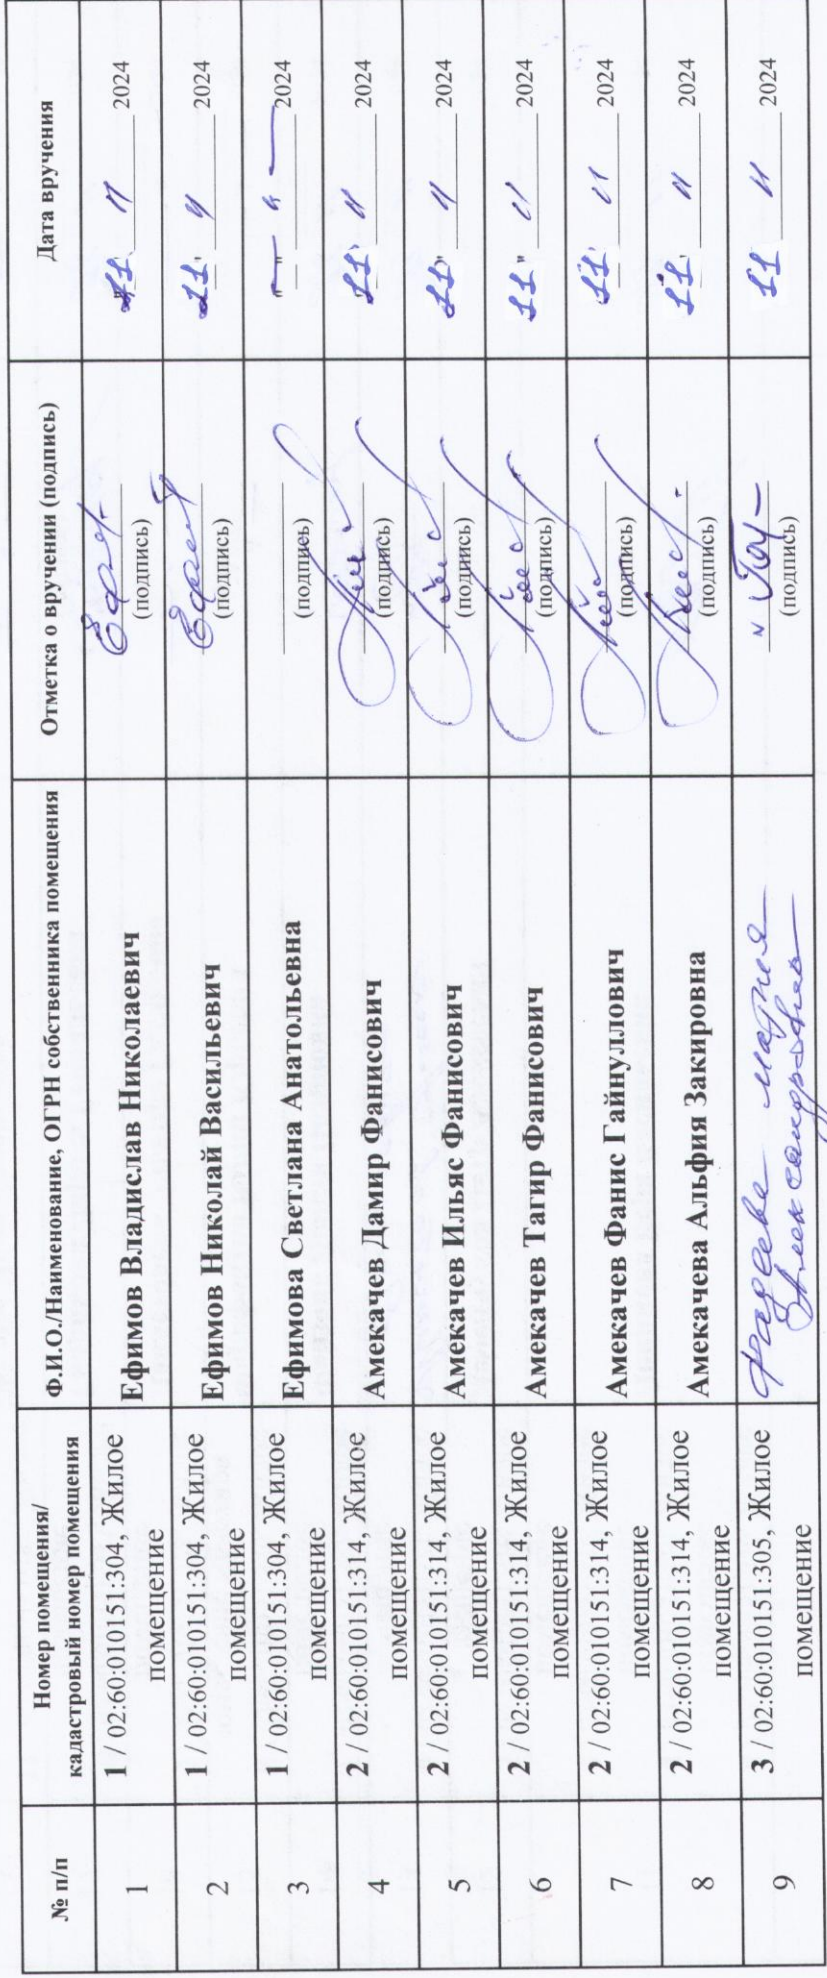 № п/п
Номер помещения/
кадастровый номер помещения
Ф.И.О./Наименование, ОГРН собственника помещения
Отметка о вручении (подпись)
Дата вручения
1
1 / 02:60:010151:304, Жилое
помещение
Ефимов Владислав Николаевич
(подпись)
11 11 2024
2
1 / 02:60:010151:304, Жилое
помещение
Ефимов Николай Васильевич
(подпись)
11 11 2024
3
1 / 02:60:010151:304, Жилое
помещение
Ефимова Светлана Анатольевна
(подпись)
2024
4
2 / 02:60:010151:314, Жилое
помещение
Амекачев Дамир Фанисович
(подпись)
11 11 2024
5
2 / 02:60:010151:314, Жилое
помещение
Амекачев Ильяс Фанисович
(подпись)
11" 11 2024
6
2 / 02:60:010151:314, Жилое
помещение
Амекачев Тагир Фанисович
(подпись)
11" 11 2024
7
2 / 02:60:010151:314, Жилое
помещение
Амекачев Фанис Гайнуллович
(подпись)
11 11 2024
8
2 / 02:60:010151:314, Жилое
помещение
Амекачева Альфия Закировна
(подпись)
11 11 2024
9
3 / 02:60:010151:305, Жилое
помещение
Фадеева Мария
Александровна
(подпись)
11 11 2024